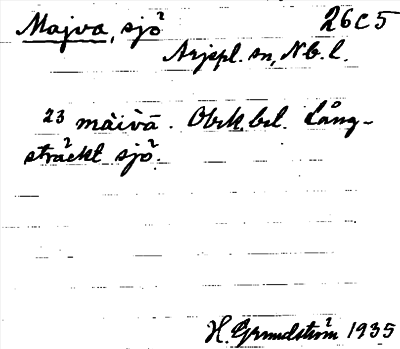 Majva, sjö 26C5
Arjspl. sn, Nb. l.
23 màivā. Obek. bel. Lång-
sträckt sjö.
H. Grundström 1935